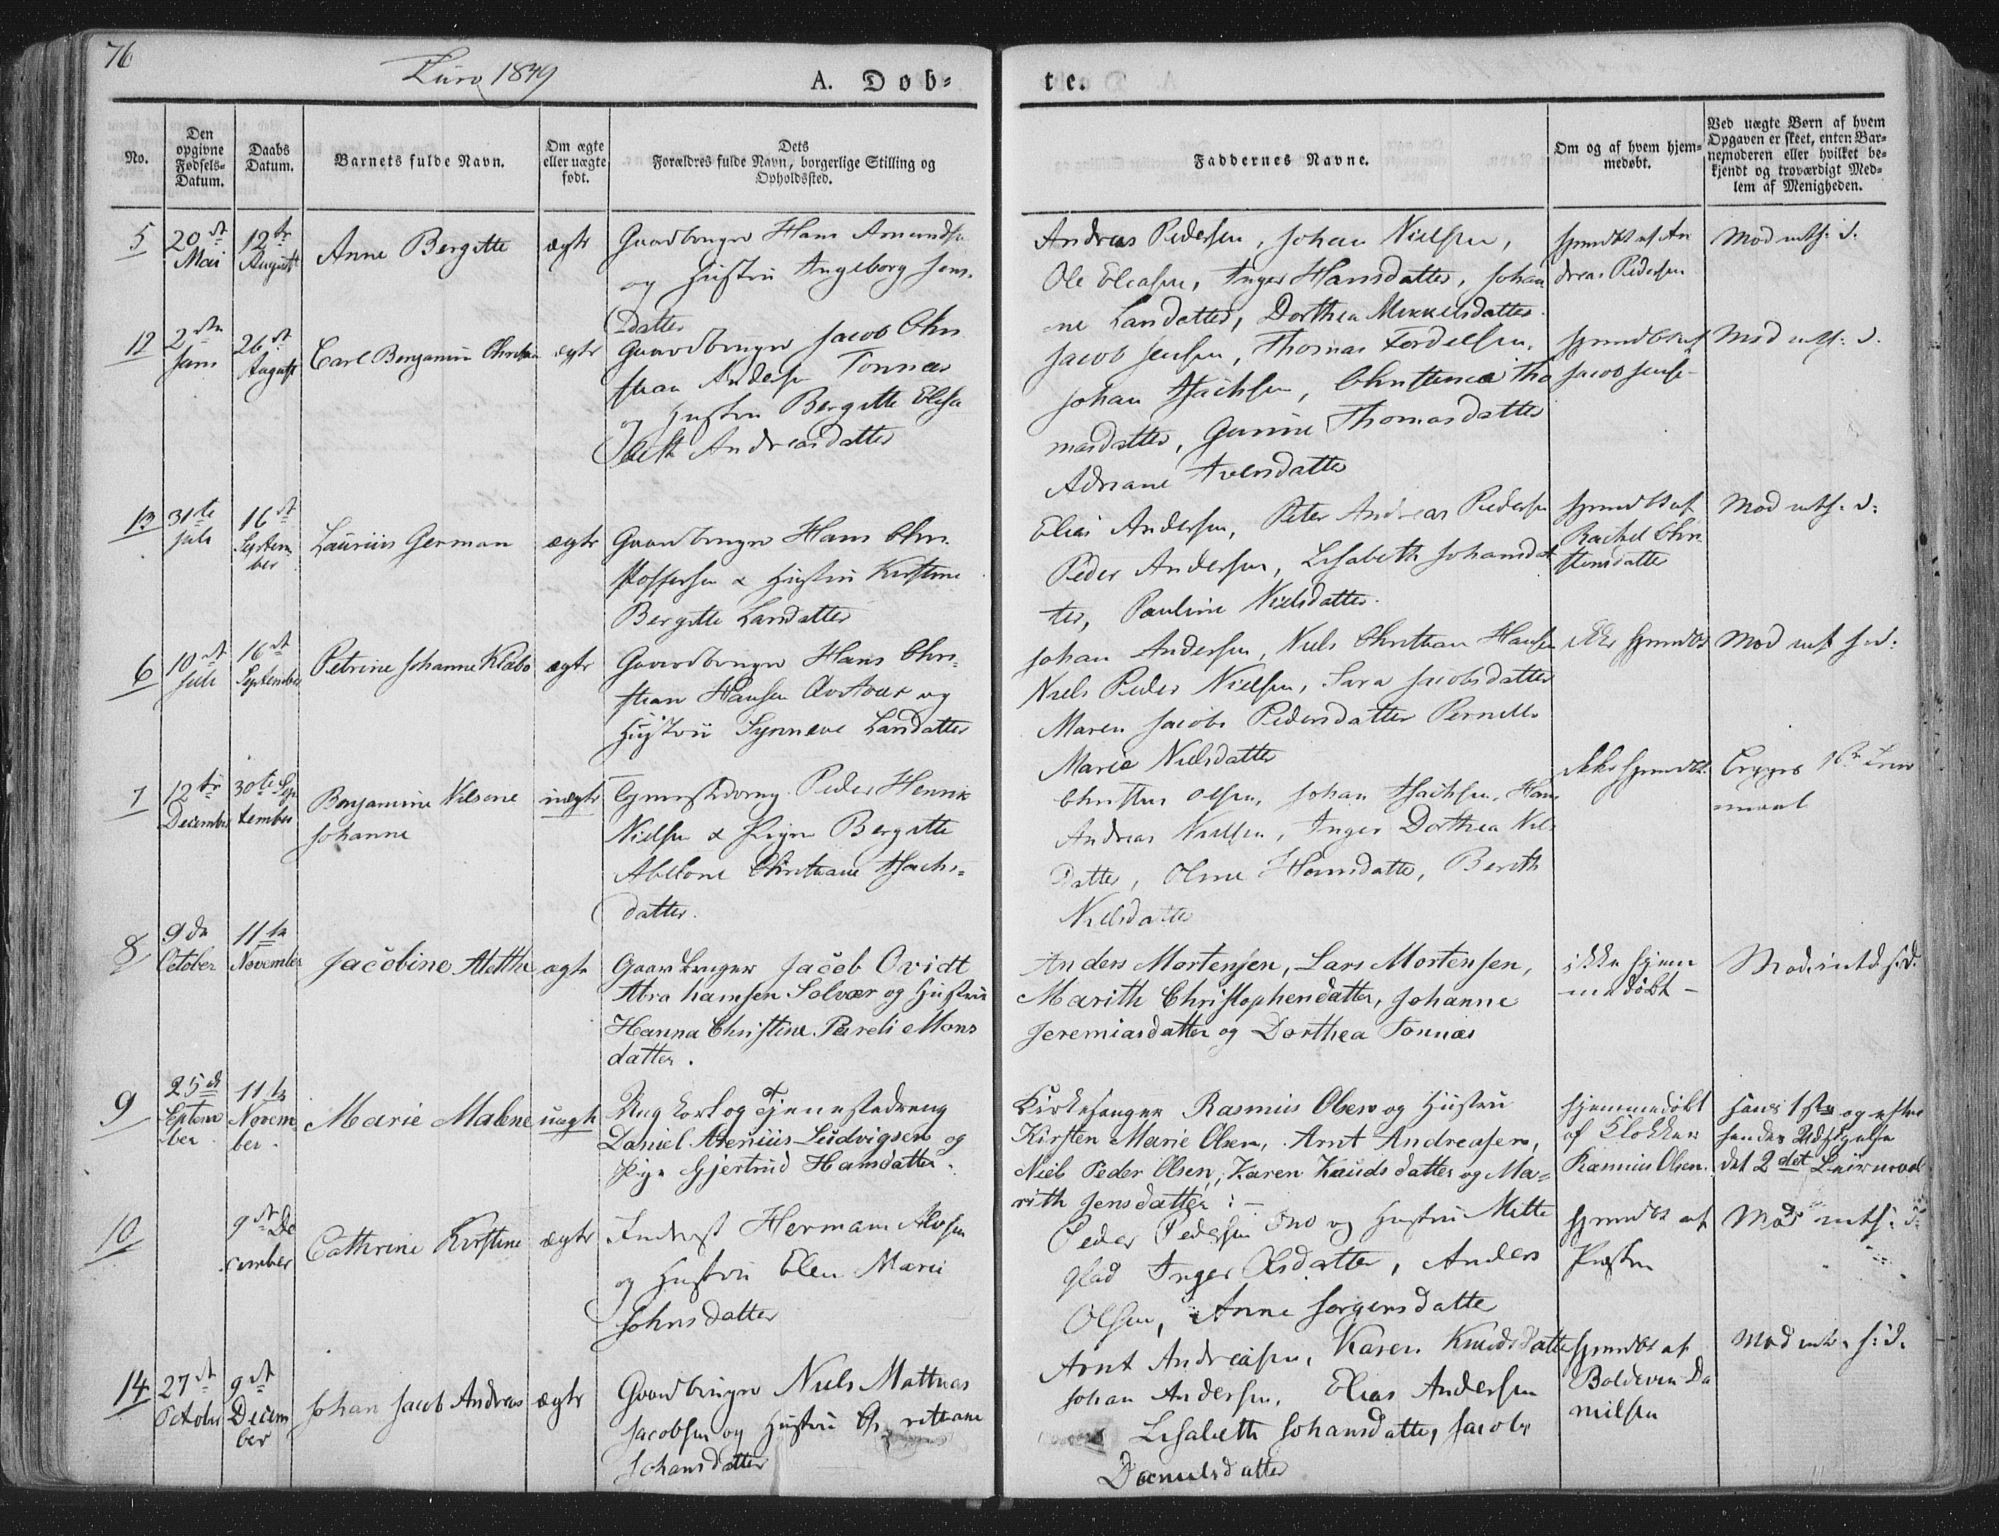 76
Lurø 1849
A. Døb-
te.
No.
Den opgivne Fødsels-Datum.
Daabs Datum.
Barnets fulde Navn.
Om ægte eller uægte født.
Dets Forældres fulde Navn, borgerlige Stilling og Opholdssted.
Faddernes Navne.
Om og af hvem hjem-medøbt.
Ved uægte Børn af hvem Opgaven er skeet, enten Bar-nemoderen eller hvilket be-kjendt og troværdigt Med-lem af Menigheden.
5
20de Mai
12te August
Anne Bergitte
ægte
Gaardbruger Hans Amunds
og Hustru Ingeborg Jons
Datter
Andreas Pedersen, Johan Nielsen,
Ole Eliasen, Inger Hansdatter, Johan
ne Larsdatter, Dorthea Mikkelsdatter
hjemdbt af An
dreas Pedersen
Mod
12
2den Juni
26de August
Carl Benjamin Christian
ægte
Gaardbruger Jacob Chri
stian Andersen Tonnes
og Hustru Bergitte Elisa
beth Andreasdatter
Jacob Jensen, Thomas
Johan Isachsen, Christence Tho
masdatter, Gunine Thomasdatter
Adriane Iversdatter
hjemdbt af
Jacob Jense
Mod
13
31te Juli
16de September
Laurius German
ægte
Gaardbruger Hans Chri
stoffersen & Hustru Kirstine
Bergitte Larsdatter
Elias Andersen, Peter Andreas Pedersen
Peder Andersen, Lisabeth Johansdat
ter, Pauline Nielsdatter.
hjemdbt af
Rachel Chri
stensdatter
Mod
6
10de Juli
16de September
Petrine Johanne
ægte
Gaardbruger Hans Chri-
stian Hansen og
Hustru Synneve Larsdatter
Johan Andersen, Niels Christian Hansen
Niels Peder Nielsen, Sara Jacobsdatter
Maren Jacobs Pedersdatter Pernelle
Marie Nielsdatter
ikke hjemdbt
Mod
7
12te December
30te September
Benjamine Nilsene
Johanne
uægte
Peder Henrik
Nielsen & Pige Bergitte
Abelone Christiane Isachs-
datter.
Olsen, Johan Isachsen, Hans
Andreas Nielsen, Inger Dorthea Niels
Datter, Oline Hansdatter, Berith
Nielsdatter
ikke hjemdbt
Begges 1ste Leier
maal
8
9de October
11te November
Jacobine Aletthe
ægte
Gaardbruger Jacob Ovidt
Abrahamsen Solvær og Hustru
Hanna Christine Pareli Mons
datter.
Anders Mortensen, Lars Mortensen,
Marith Christophersdatter, Johanne
Jeremiasdatter og Dorthea Tonnæs
ikke hjem
medøbt -
Mod.
9
25de September
11te November.
Marie Malene
uægte
Ung karl og Tjenestedreng
Daniel Arenius Ludvigsen og
Pige Gjertrud Hansdatter.
Kirkesanger Rasmus Olsen og Hustru
Kirsten Marie Olsen, Arnt Andreasen,
Niels Peder Olsen, Karen Knudsdatter og Ma-
rith Jensdatter :-
hjemmedøbt
af Klokker
Rasmus Olsen.
Hans 1ste og efter
hendes Udsigelse
det 2det Leiermaal
10
9de December
Cathrine Kirstine
ægte
Inderst Herman Alvsen
og Hustru Elen Marie
Johnsdatter
Peder Pedersen og Hustru Mette
Glad Inger Olsdatter, Anders
Olsen, Anne Jorgensdatter
hjemdbt af
Præsten
Mod
14
27de October
9de December
Johan Jacob Andreas
ægte
Gaardbruger Niels Mattias
Jacobsen og Hustru
Johansdatter
Arnt Andreasen, Karen Knudsdatter
Johan Andersen, Elias Andersen
Lisabeth Johansdatter, Jacob
Danielsdatter
hjemdbt af
Boldeven Da
nielsen
Mod